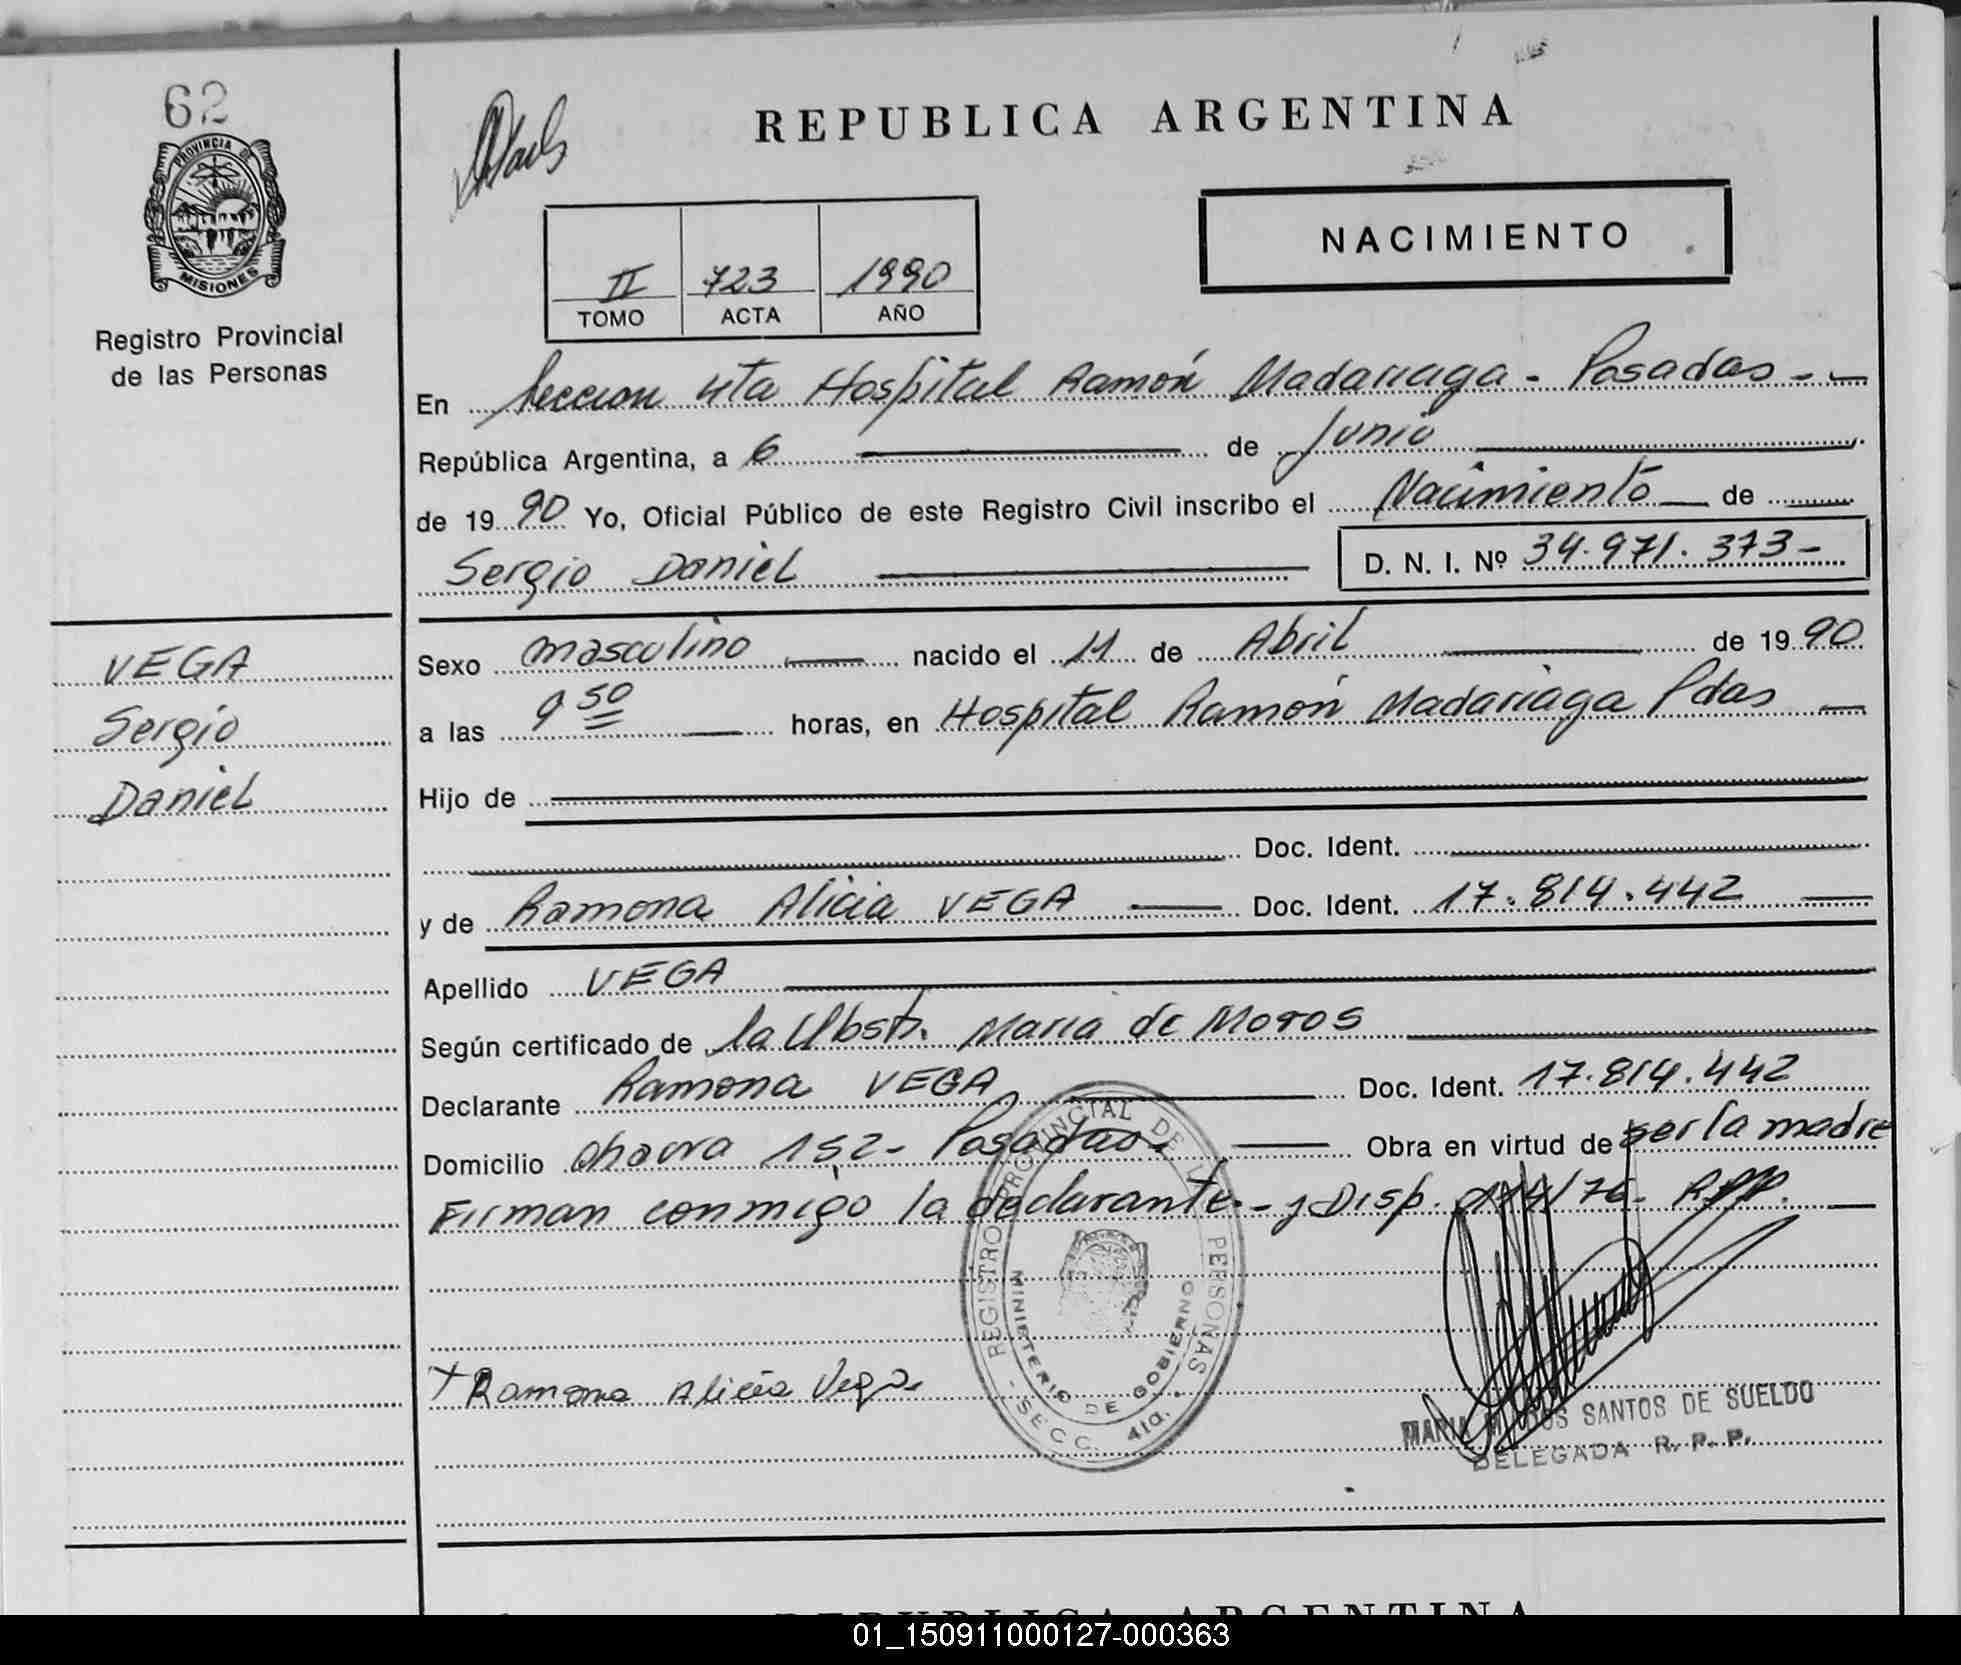 62
PROVINCIA DE
MISIONES
Registro Provincial
de las Personas
VEGA
Sergio
Daniel
REPUBLICA ARGENTINA
NACIMIENTO
II 723 1990
TOMO ACTA AÑO
En Seccion 4ta Hospital Ramón Madariaga - Posadas -
República Argentina, a 6 de Junio
de 1990 Yo, Oficial Público de este Registro Civil inscribo el Nacimiento de
Sergio Daniel D. N. I. Nº 34.971.373-
Sexo masculino nacido el 11 de Abril de 1990
a las 9 50 horas, en Hospital Ramón Madariaga Pdas
Hijo de
Doc. Ident.
y de Ramona Alicia VEGA Doc. Ident. 17.814.442
Apellido VEGA
Según certificado de la Obst. Maria de Moros
Declarante Ramona VEGA Doc. Ident. 17.814.442
Domicilio 152- Posadas- Obra en virtud de ser la madre
Firman conmigo la declarante.- y Disp. /76- RPP.
REGISTRO PROVINCIAL DE L PERSONAS
MINISTERIO DE GOBIERNO
- SECC. 4ta. -
+ Ramona Alicia Vega.
MARIA M. DOS SANTOS DE SUELDO
DELEGADA R. P. P.
REPUBLICA ARGENTINA
01_150911000127-000363